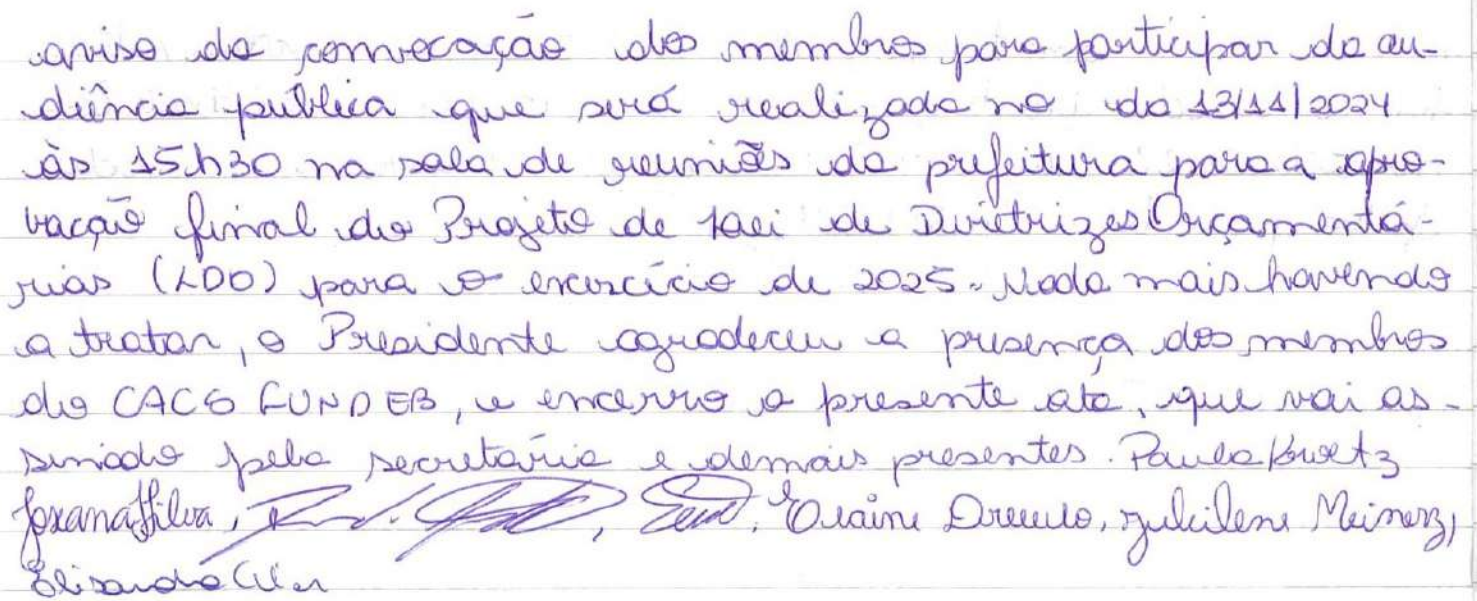 aviso da convocação dos membros para participar da au-
diência pública que será realizada no da 13/11/2024
às 15h30 na sala de reuniões da prefeitura para a apro-
vação final do Projeto de Lei de Diretrizes Orçamentá-
rias (LDO) para o exercício de 2025. Nada mais havendo
a tratar, o Presidente agradeceu a presença dos membros
do CACS FUNDEB, e encerro a presente ata, que vai as-
sinada pela secretária e demais presentes. Paula
Silva, Elaine, Meinerz,
Elisandra